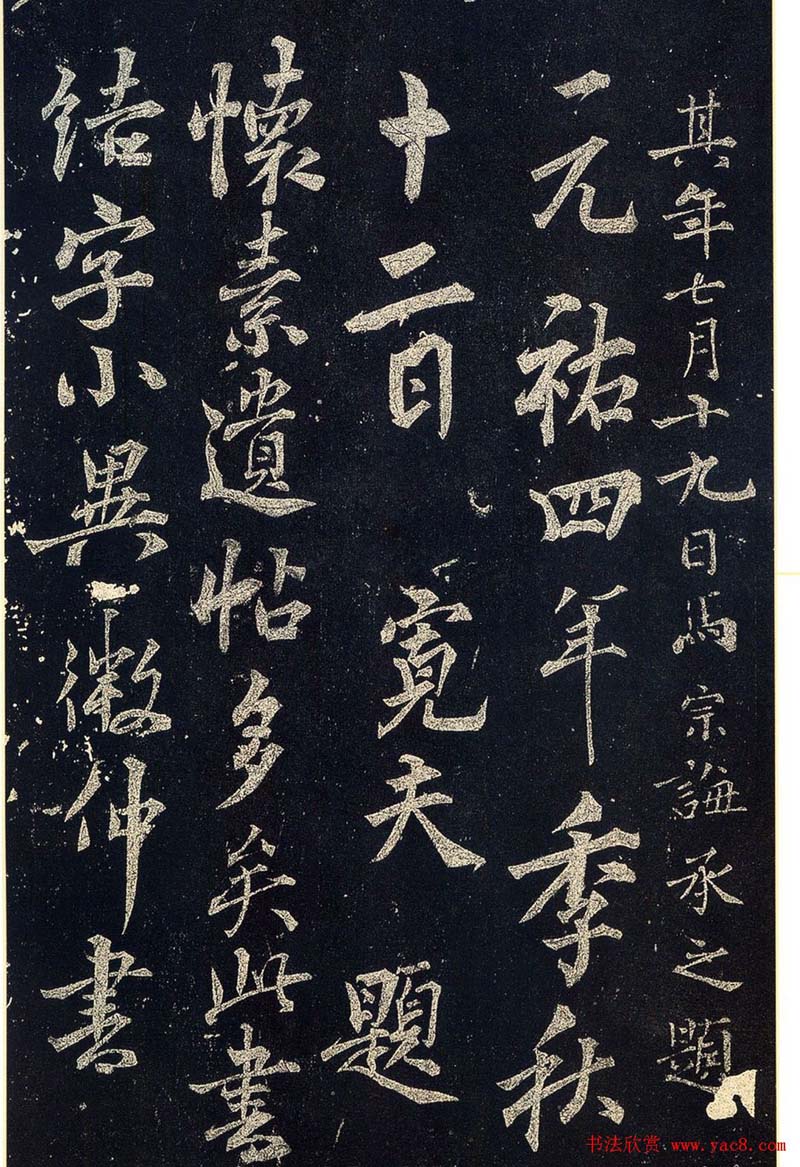 其年七月十九日馬宗誨承之題
元祐四年季秋
十二日 寬夫 題
懷素遺帖多矣此書
結字小異微仲書
书法欣赏 www.yac8.com